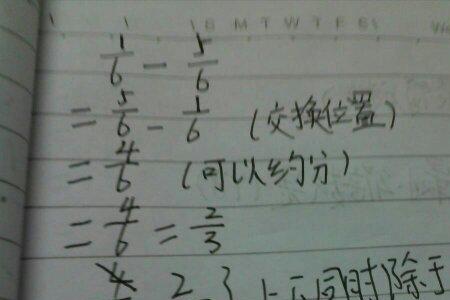 S M T W T F S
1/6 - 5/6
= 5/6 - 1/6 (交换位置)
= 4/6 (可以约分)
= 4/6 = 2/3
4 2 3 上下同时除于